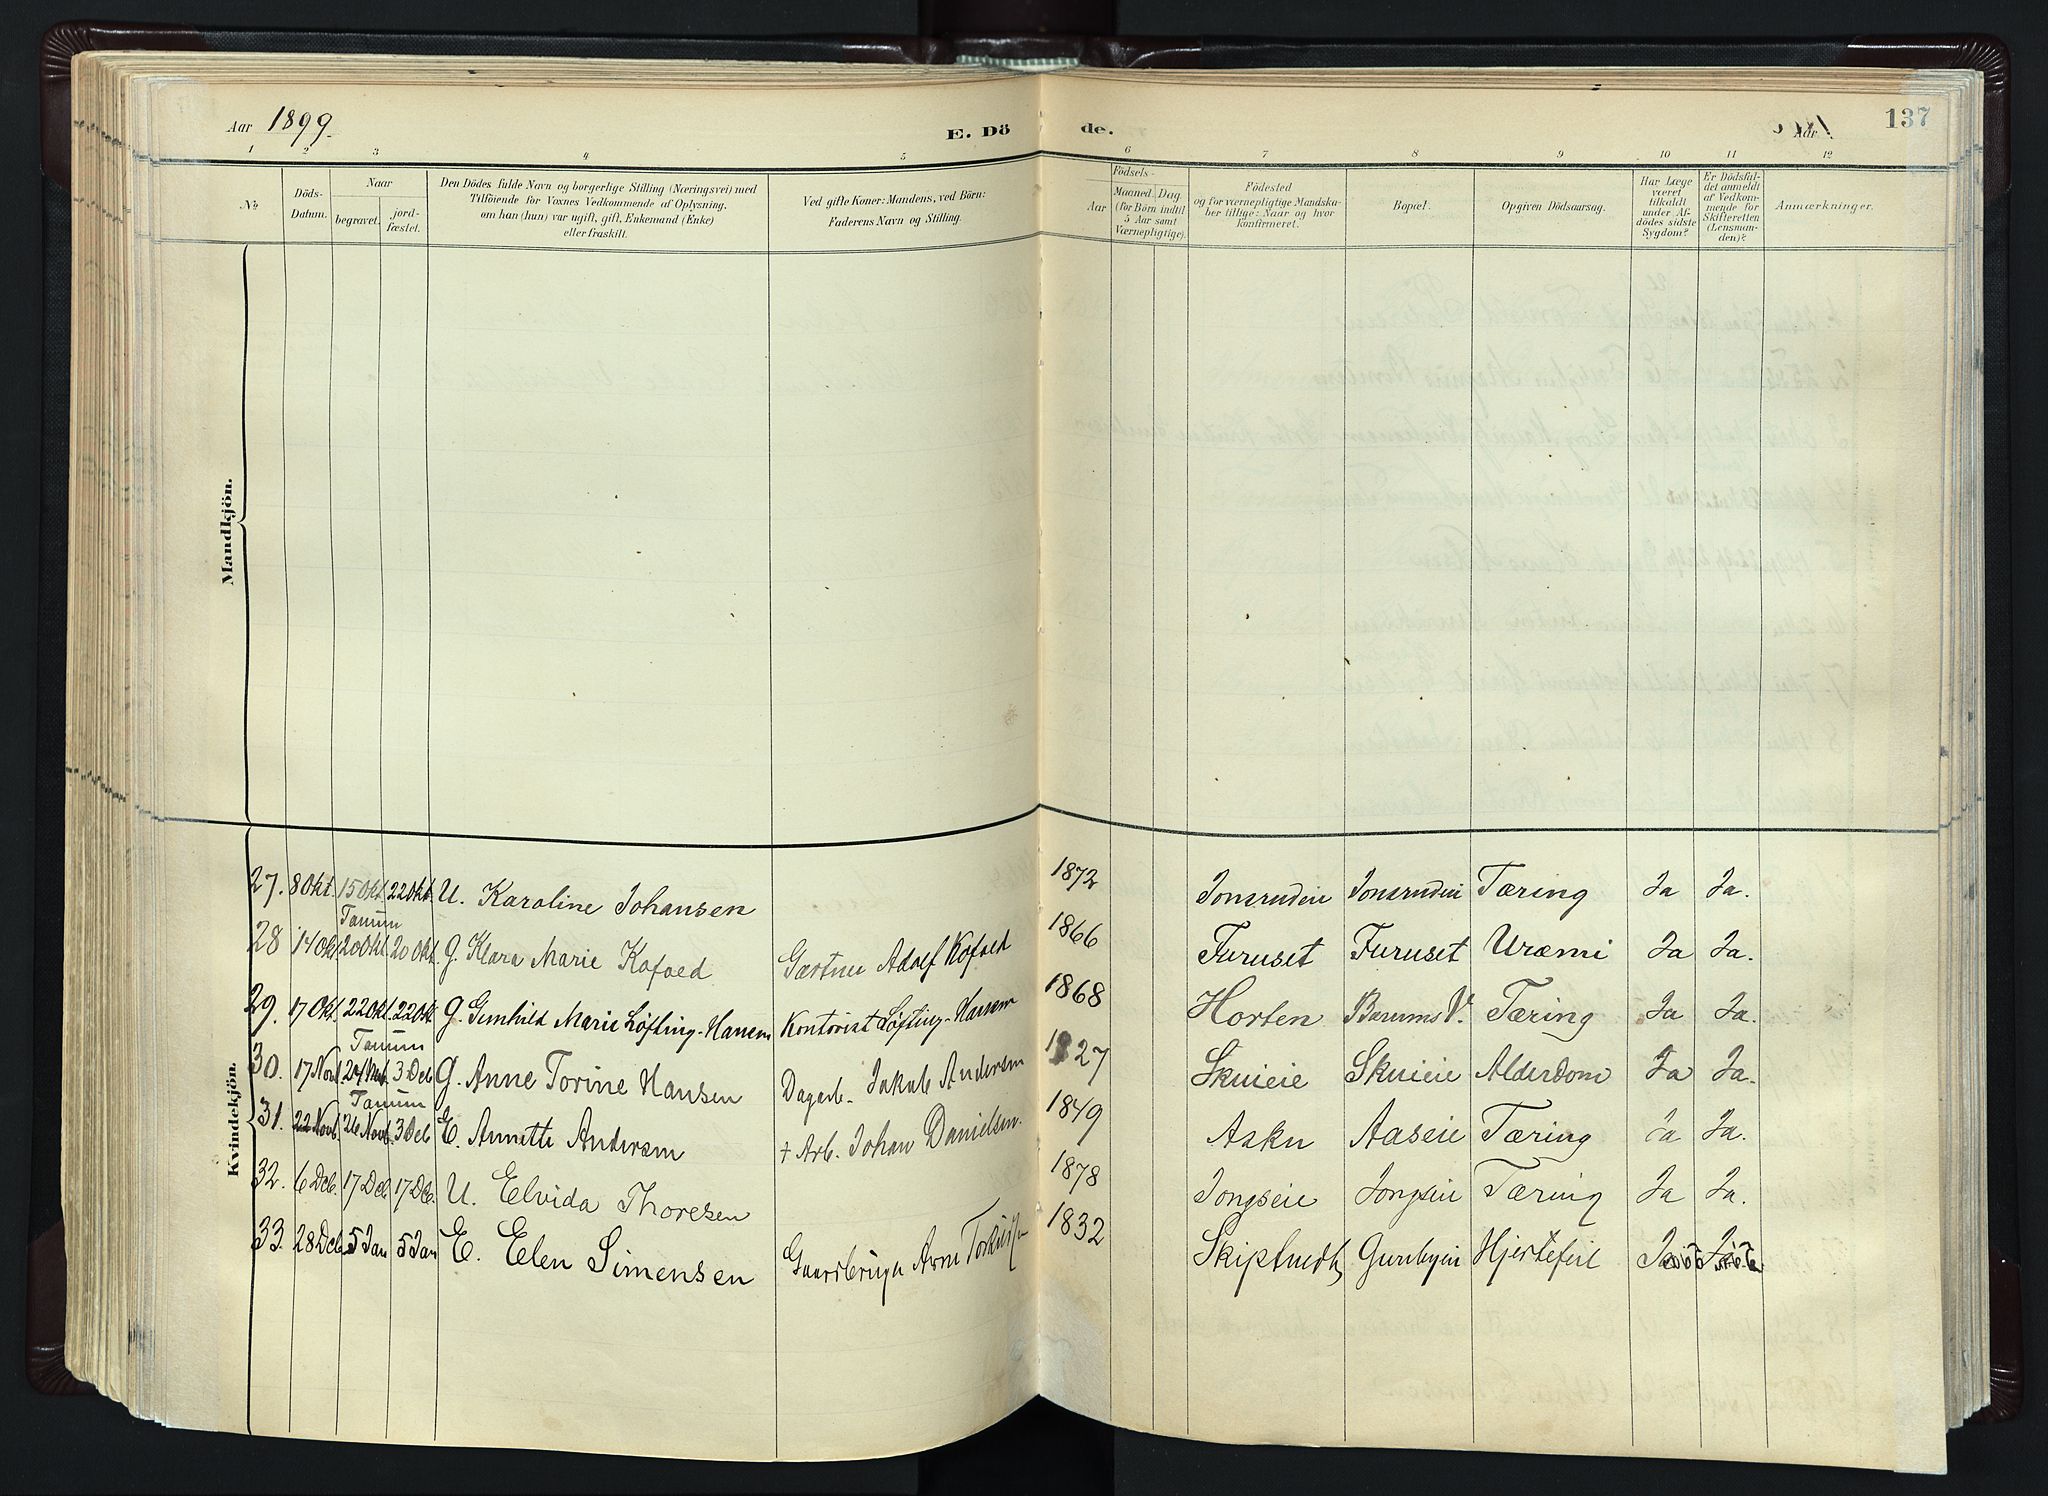 Aar 1899.
E. Dö de.
Aar
137
1 2 3 4 5 6 7 8 9 10 11 12
No
Döds-Datum.
Naar
begravet.
jord-fæstet.
Den Dödes fulde Navn og borgerlige Stilling (Næringsvei) med
Tilföiende for Voxnes Vedkommende af Oplysning,
om han (hun) var ugift, gift, Enkemand (Enke)
eller fraskilt.
Ved gifte Koner: Mandens, ved Börn:
Faderens Navn og Stilling.
Födsels-
Aar
Maaned. Dag.
(for Börn indtil
5 Aar samt
Værnepligtige).
Födested
og for værnepligtige Mandska-
ber tillige: Naar og hvor
konfirmeret.
Bopæl.
Opgiven Dödsaarsag.
Har Læge
været
tilkaldt
under Af-
dödes sidste
Sygdom?
Er Dödsful-
det anmeldt
af Vedkom-
mende for
Skifteretten
(Lensman-
den)?
Anmærkninger.
Mandkjön.
Kvindekjön.
27. 8 Okt. 15 Okt. 22 Okt. U. Karoline Johansen 1872 Jonsrudeie Jonsrudeie Tæring Ja Ja.
Tanum
28 14 Okt 20 Okt 20 Okt. G. Klara Marie Kofoed Gartner Adolf Kofoed 1866 Furuset Furuset Uræmi Ja Ja.
29. 17 Okt. 22 Okt. 22 Okt G. Gunhild Marie Løfting-Hansen Kontorist Løfting-Hansen 1868 Horten Bærums V. Tæring Ja Ja.
Tanum
30. 17 Novb 24 Nvb. 3 Deb G. Anne Torine Hansen Dagarb. Jakob Andersen 1827 Skuieie Skuieie Alderdom Ja Ja.
Tanum
31. 22 Novb. 26 Novb. 3 Deb E. Annette Andersen + Arb. Johan Danielsen. 1849 Asker Aaseie Tæring Ja Ja.
32. 6 Dcb. 17 Dcb. 17 Dcb. U. Eelvida Thoresen 1878 Jongseie Jongseie Tæring Ja Ja.
33. 28 Dcb. 5 Jan 5 Jan E. Elen Simensen Gaardbruger Arne 1832 Skiptvedt Hjertefeil Ja Ja